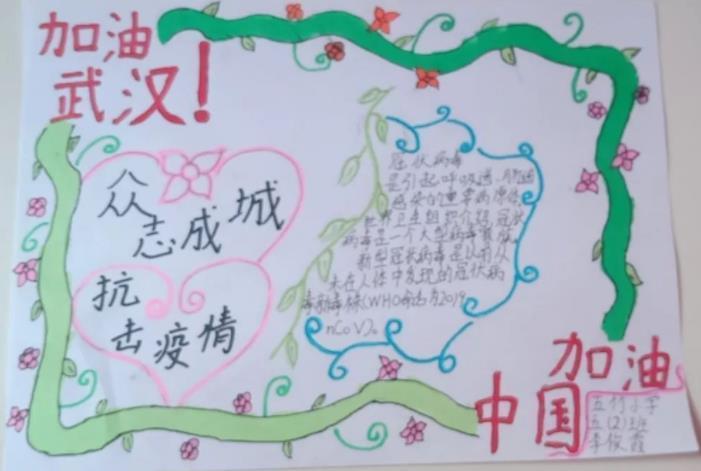 加油
武汉!
众
志成城
抗
击疫情
冠状病毒
是引起呼吸道、肠道
感染的重要病原体
世界卫生组织介绍,冠状
病毒是一个大型病毒家族。
新型冠状病毒是以前从
未在人体中发现的冠状病
毒新毒株(WHO命名为2019
nCoV)。
加油
中国
五竹小学
五(2)班
李俊霞